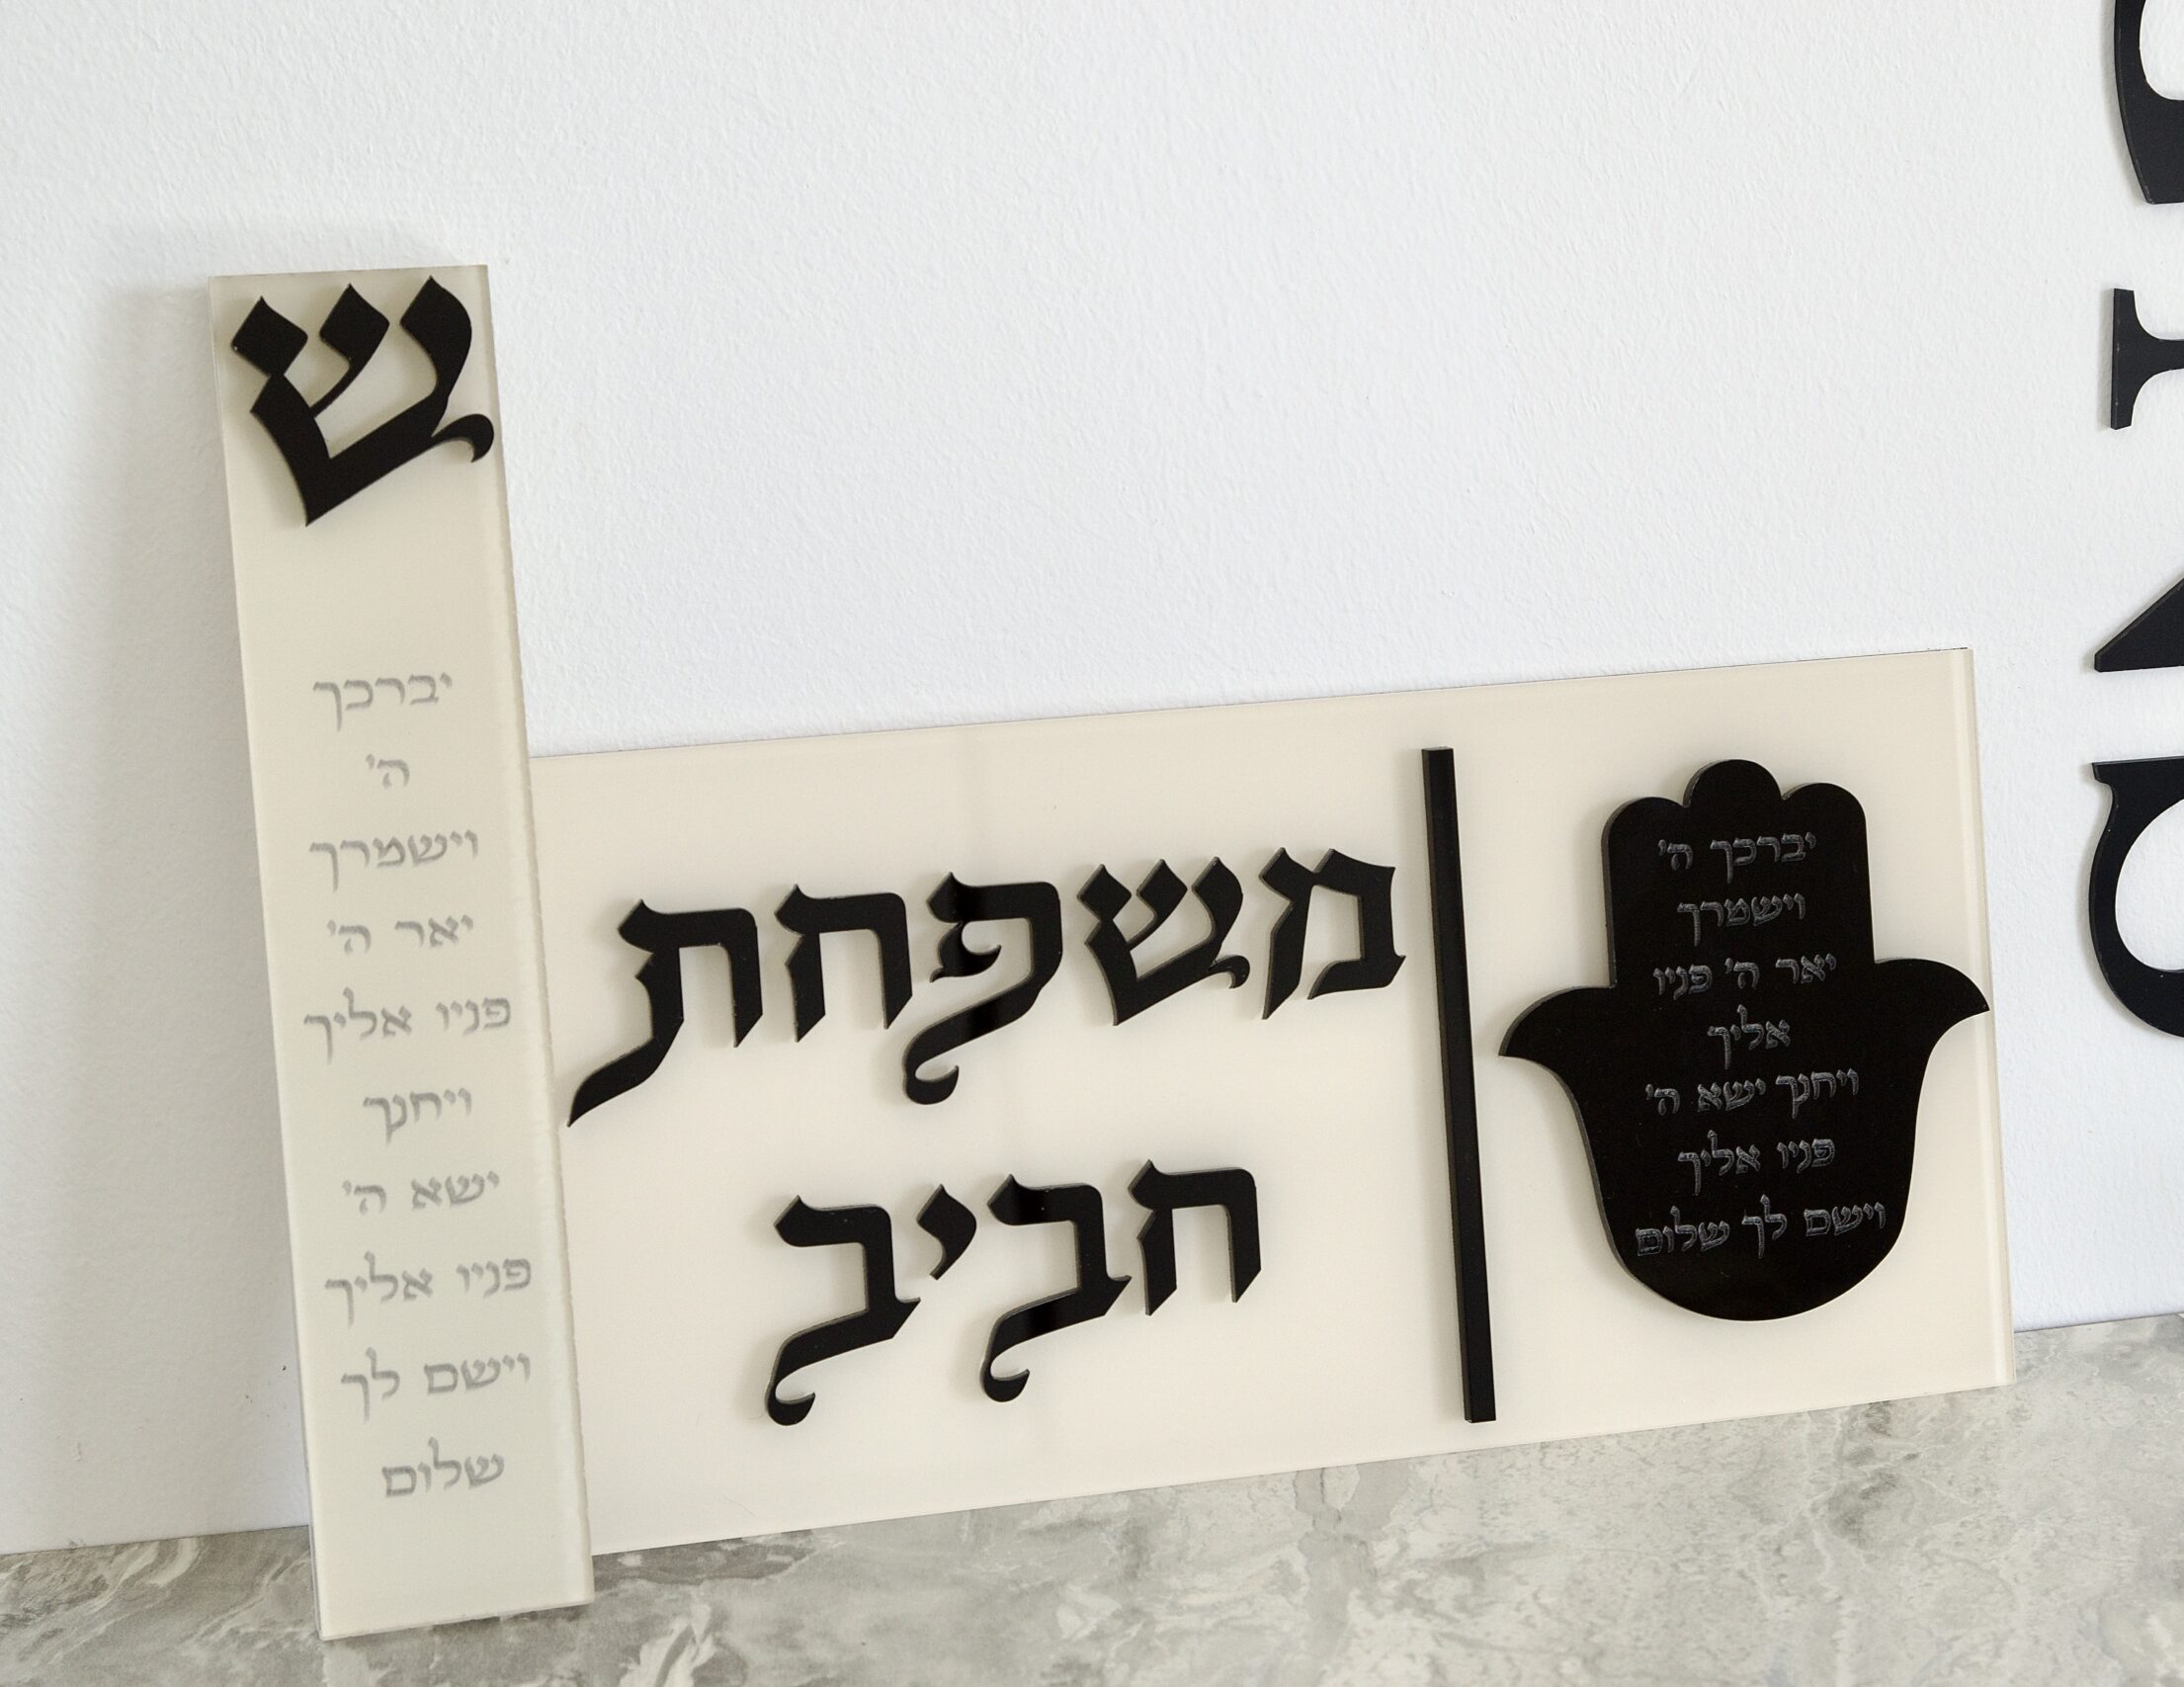 ש
יברכך
ה'
וישמרך
יאר ה'
פניו אליך
ויחנך
ישא ה'
פניו אליך
וישם לך
שלום
משפחת
חביב
יברכך ה'
וישמרך
יאר ה' פניו
אליך
ויחנך ישא ה'
פניו אליך
וישם לך שלום